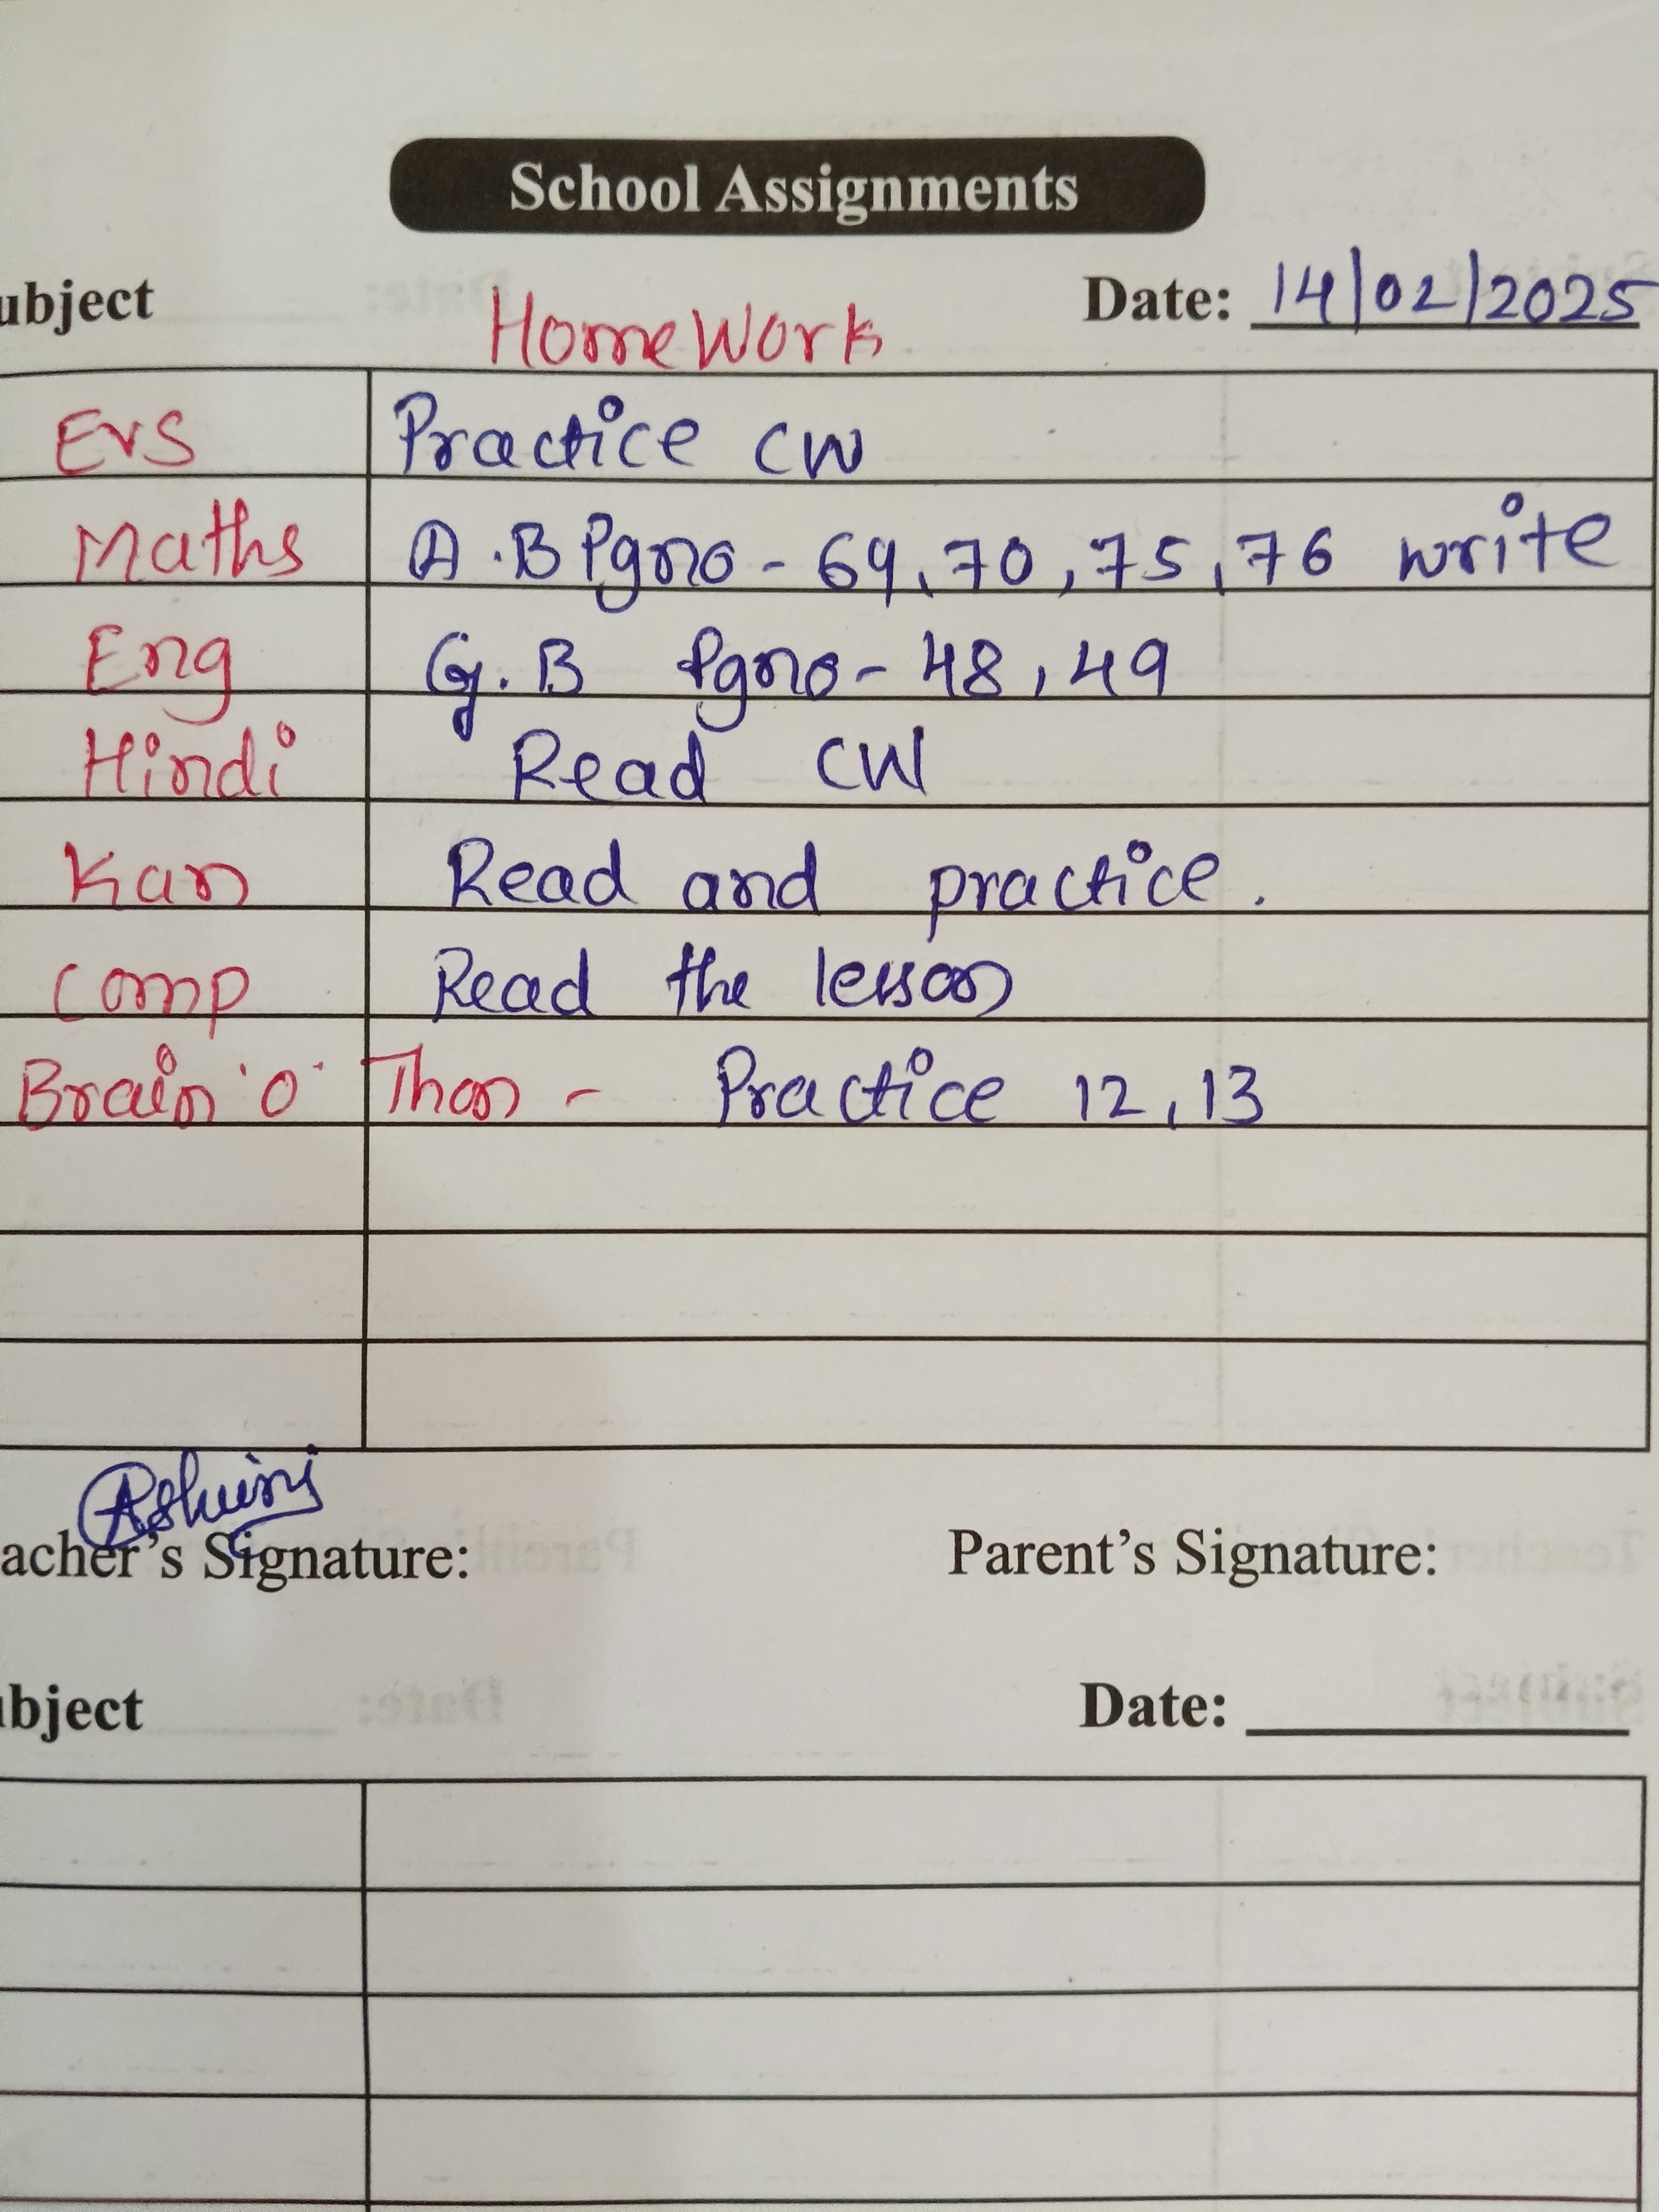 School Assignments
ubject HomeWork Date: 14/02/2025
EVS Practice CW
Maths A.B Pgno - 69, 70, 75, 76 write
Eng G.B Pgno - 48, 49
Hindi Read CW
Kan Read and practice.
Comp Read the lesson
Brain 'O' Thon - Practice 12, 13
Ashwini
acher's Signature: Parent's Signature:
bject Date: